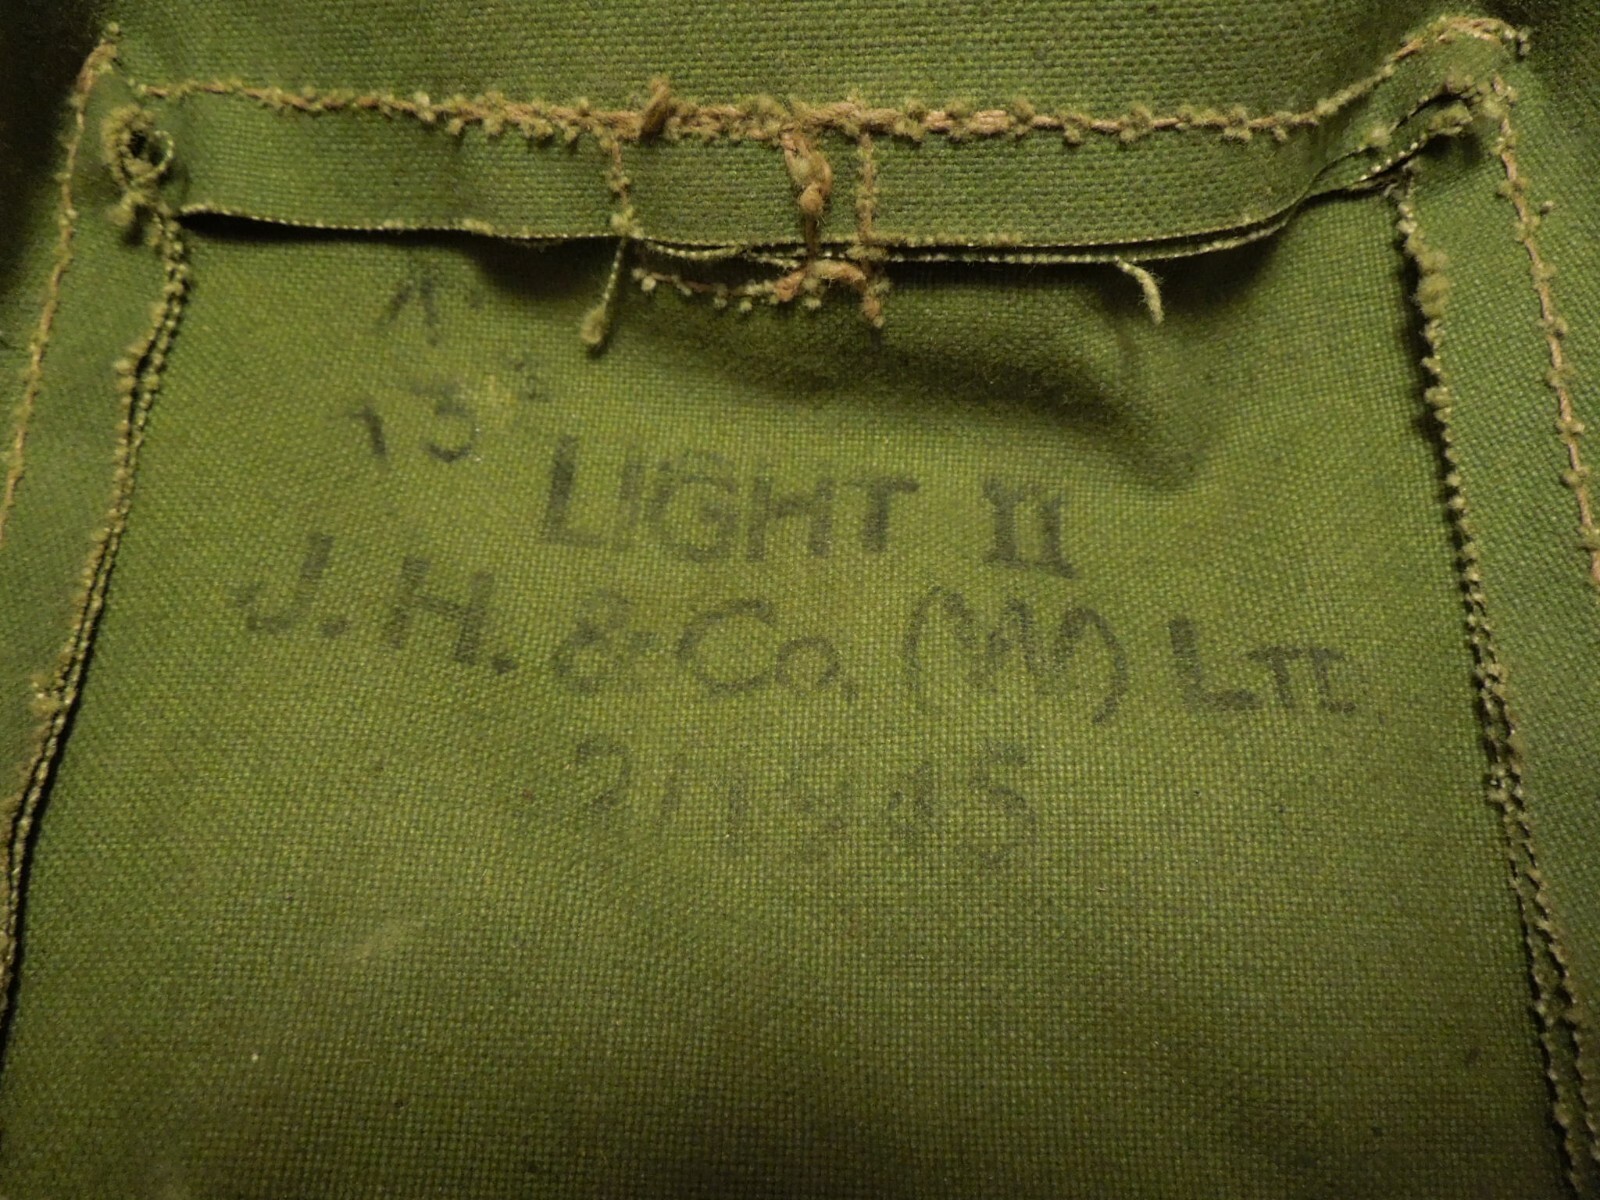 13
LIGHT II
J.H. & Co, (W) LTD
2/1945